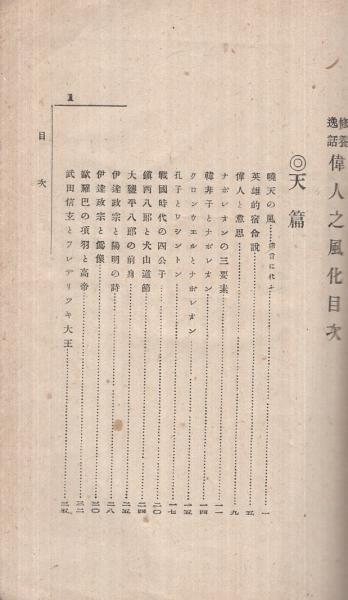 修養逸話 偉人之風化目次
◎天篇
曉天の風……緖言に代ふ……一
英雄的宿命說……五
偉人と意思……九
ナポレオンの三要素……一一
韓非子とナポレオン……一四
クロンウエルとナポレオン……一五
孔子とワシントン……一七
戰國時代の四公子……二〇
鎭西八郞と犬山道節……二四
大鹽平八郞の前身……二五
伊達政宗と陽明の詩……二八
伊達政宗と爲儡……三〇
歐羅巴の項羽と高帝……三二
武田信玄とフレデリツキ大王……三五
目次
1